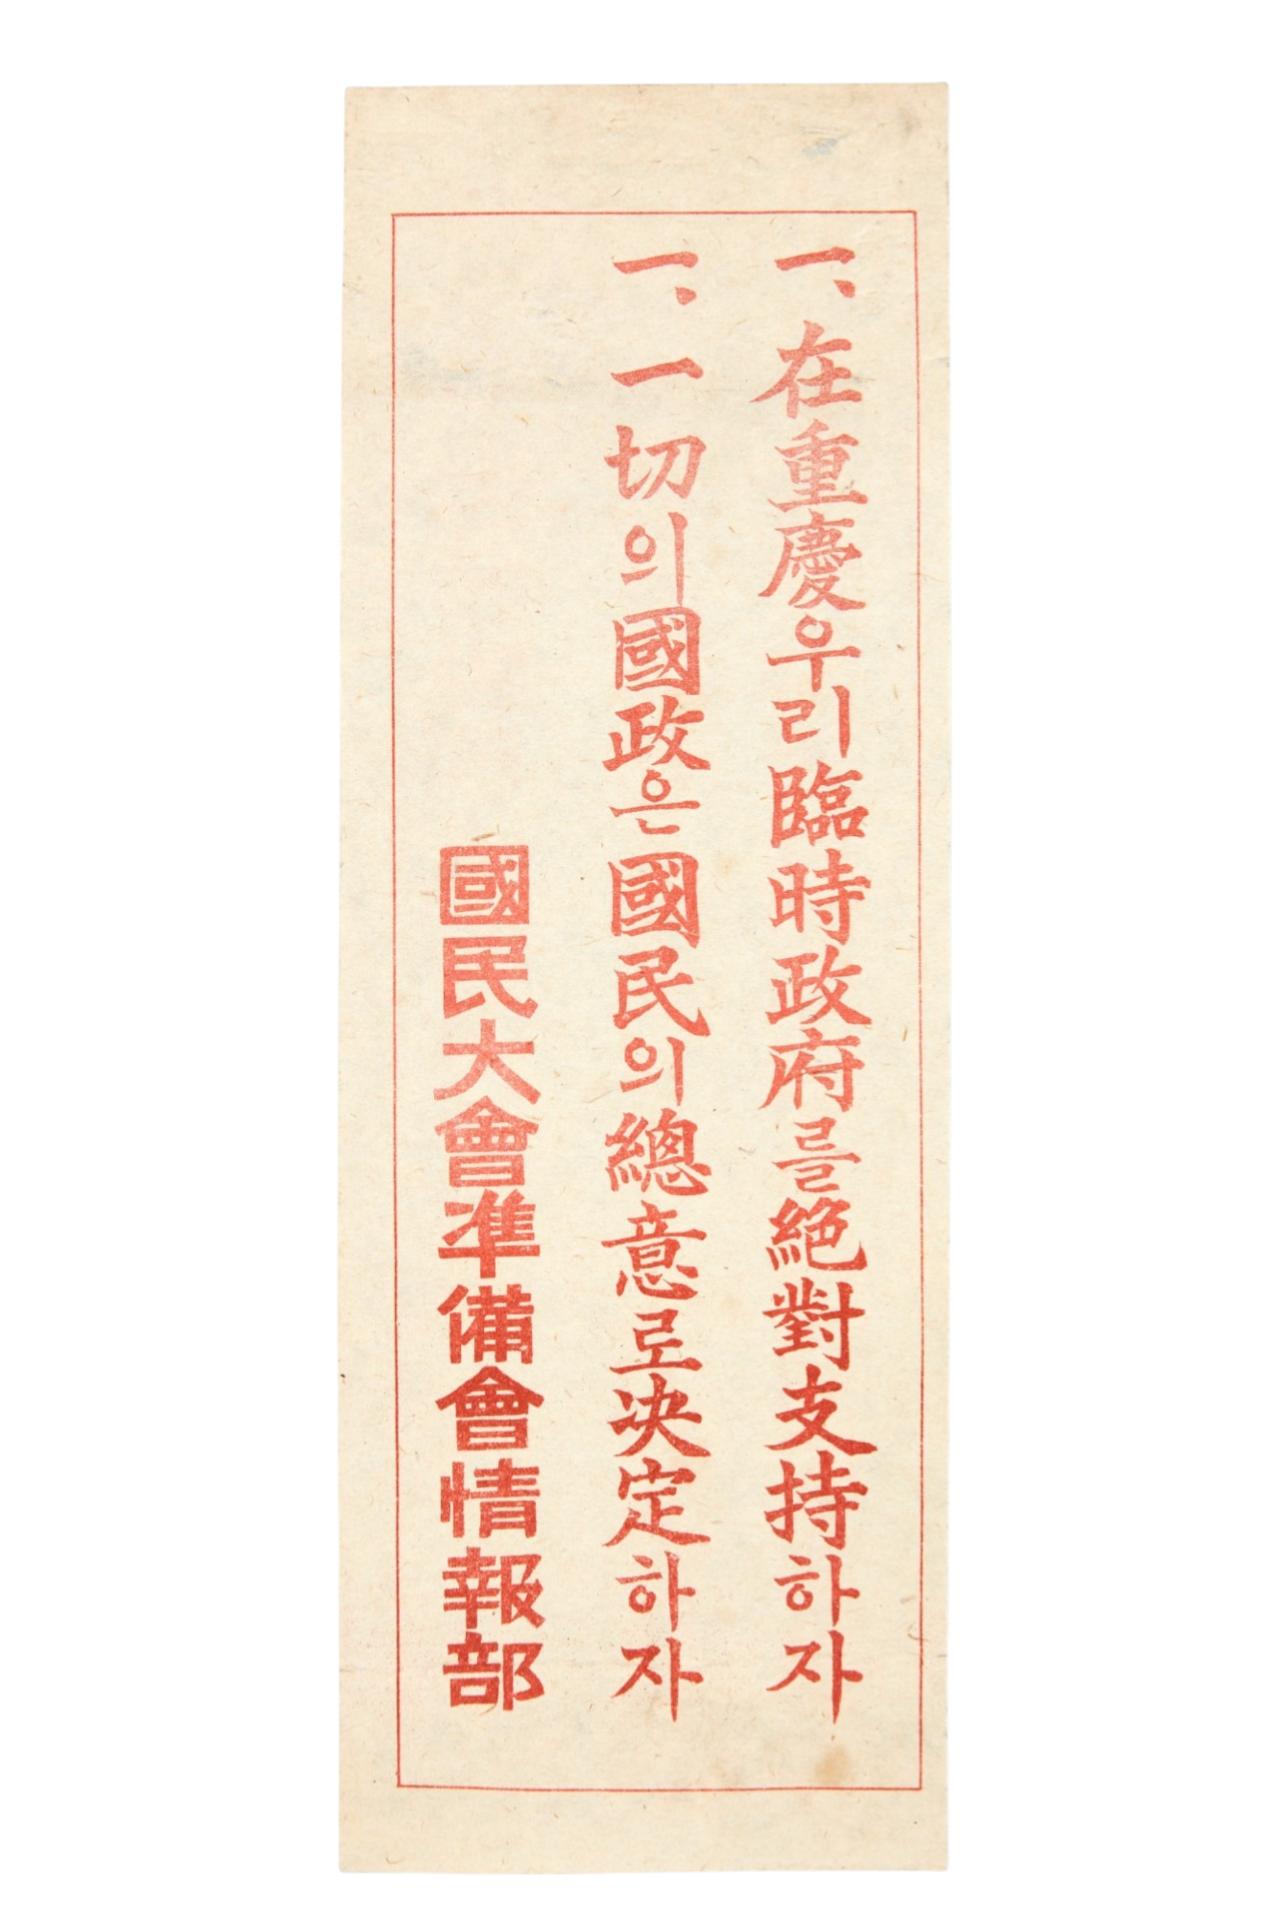 一、在重慶우리臨時政府를絶對支持하자
一、一切의國政은國民의總意로决定하자
國民大會準備會情報部